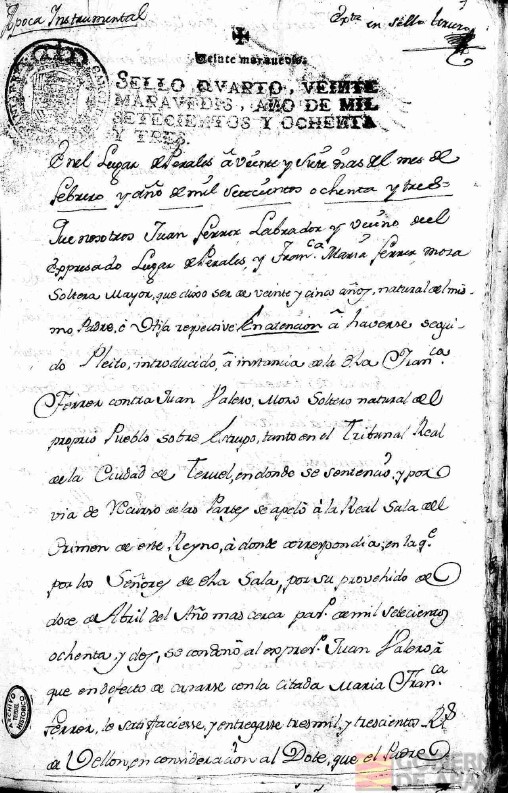 Epoca Instrumental
Extr.ta en sello tercero
Veinte maravedis.
SELLO QVARTO, VEINTE
MARAVEDIS, AÑO DE MIL
SETECIENTOS Y OCHENTA
Y TRES.
En el Lugar de Perales â veinte y Siete dias del mes de
febrero y año de mil Setecientos ochenta y tres=
Que nosotros Juan ferrer Labrador y vecino del
Expresado Lugar de Perales, y Fran.ca Maria ferrer, moza
Soltera Mayor, que dixo ser de veinte y cinco años, natural del mis-
mo, Padre, è Hija respective: En atencion â haverse segui-
do Pleito, introducido, â instancia de la dha Fran.ca
Ferrer contra Juan Valero, Mozo Soltero natural del
proprio Pueblo sobre Estupro, tanto en el Tribunal Real
de la Ciudad de Teruel, en donde se sentenciò, y por
via de Recurso de las Partes se apelò â la Real Sala del
Crimen de este Reyno, â donde correspondia; en la q.e
por los Señores de dha Sala, por su provehido de
doce de Abril del Año mas cerca pas.o de mil setecientos
ochenta, y dos, se condenò al expres.o Juan Valero, â
que en defecto de casarse con la citada Maria Fran.ca
Ferrer, le satisfaciesse, y entregasse tres mil, y trescientos R.s
de Vellon, en consideracion al Dote, que el Padre
ARCHIVO
HISTORICO
TERUEL
GOBIERNO
DE ARAGON